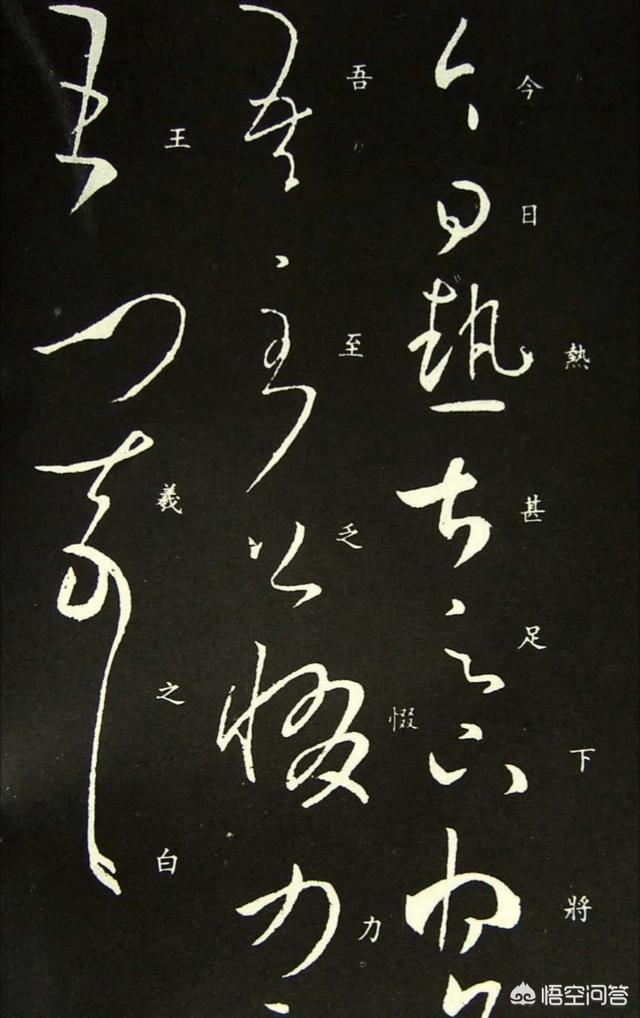 今日熱甚足下將
吾至乏惙力
王羲之白
悟空问答